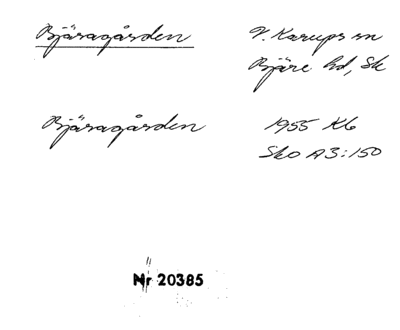 Bjäragården
V. Karups sn
Bjäre hd, Sk
Bjäragården
1955 Kb
Sko A3:150
Nr 20385